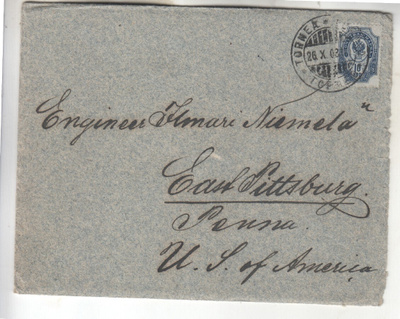 TORNEÅ
26.X.03
Engineer Ilmari Niemelä
East Pittsburg.
Penna
U. S. of America